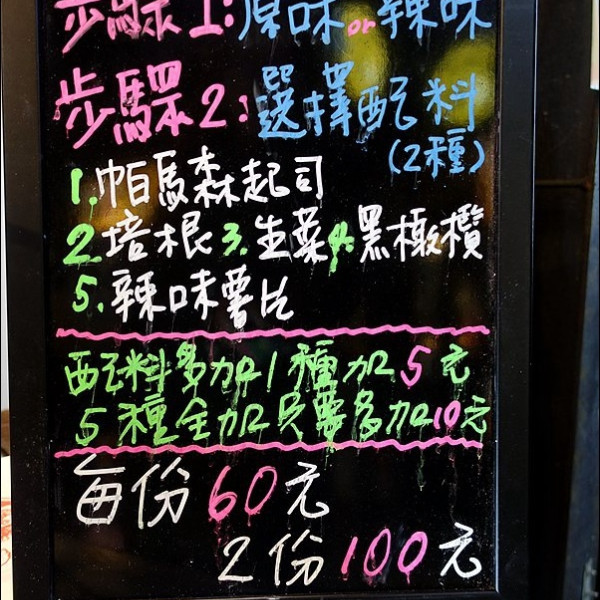 步驟1:原味or辣味
步驟2:選擇配料
(2種)
1.帕馬森起司
2.培根3.生菜4.黑橄欖
5.辣味薯片
配料多加1種加5元
5種全加只要多加10元
每份60元
2份100元